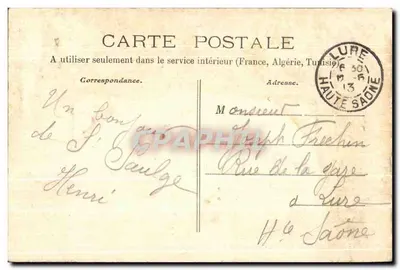 CARTE POSTALE
A utiliser seulement dans le service intérieur (France, Algérie, Tunisie).
Correspondance.
Adresse.
LURE
HAUTE SAÔNE
13
Un bonjour
de S.
Henri
Monsieur
Joseph Frechin
Rue de la gare
à Lure
Hte Saône
CPARAMA